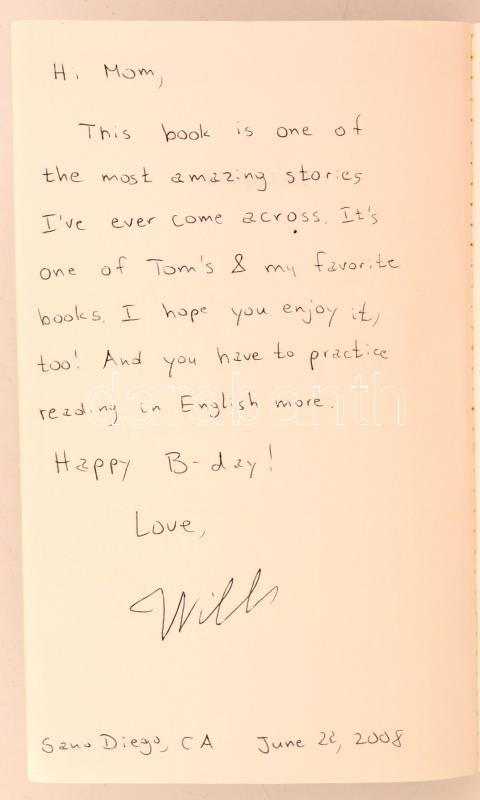 Hi Mom,
This book is one of
the most amazing stories
I've ever come across. It's
one of Tom's & my favorite
books. I hope you enjoy it,
too! And you have to practice
reading in English more.
darabanth
Happy B-day!
Love,
Sano Diego, CA June 22, 2008